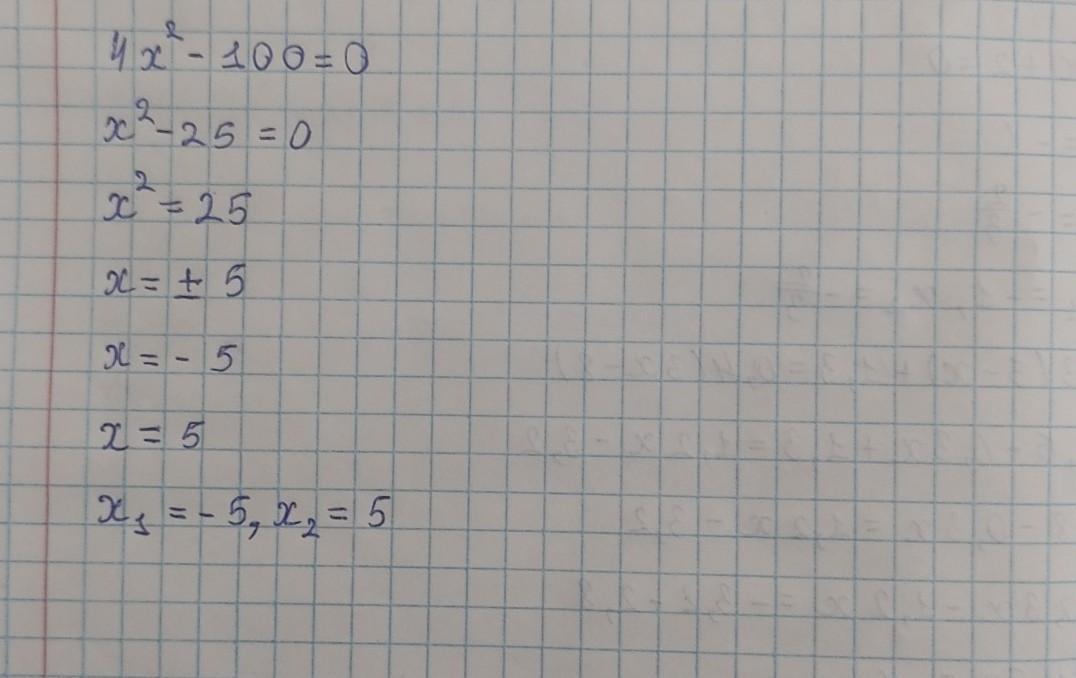 4x² - 100 = 0
x² - 25 = 0
x² = 25
x = ± 5
x = - 5
x = 5
x₁ = - 5, x₂ = 5